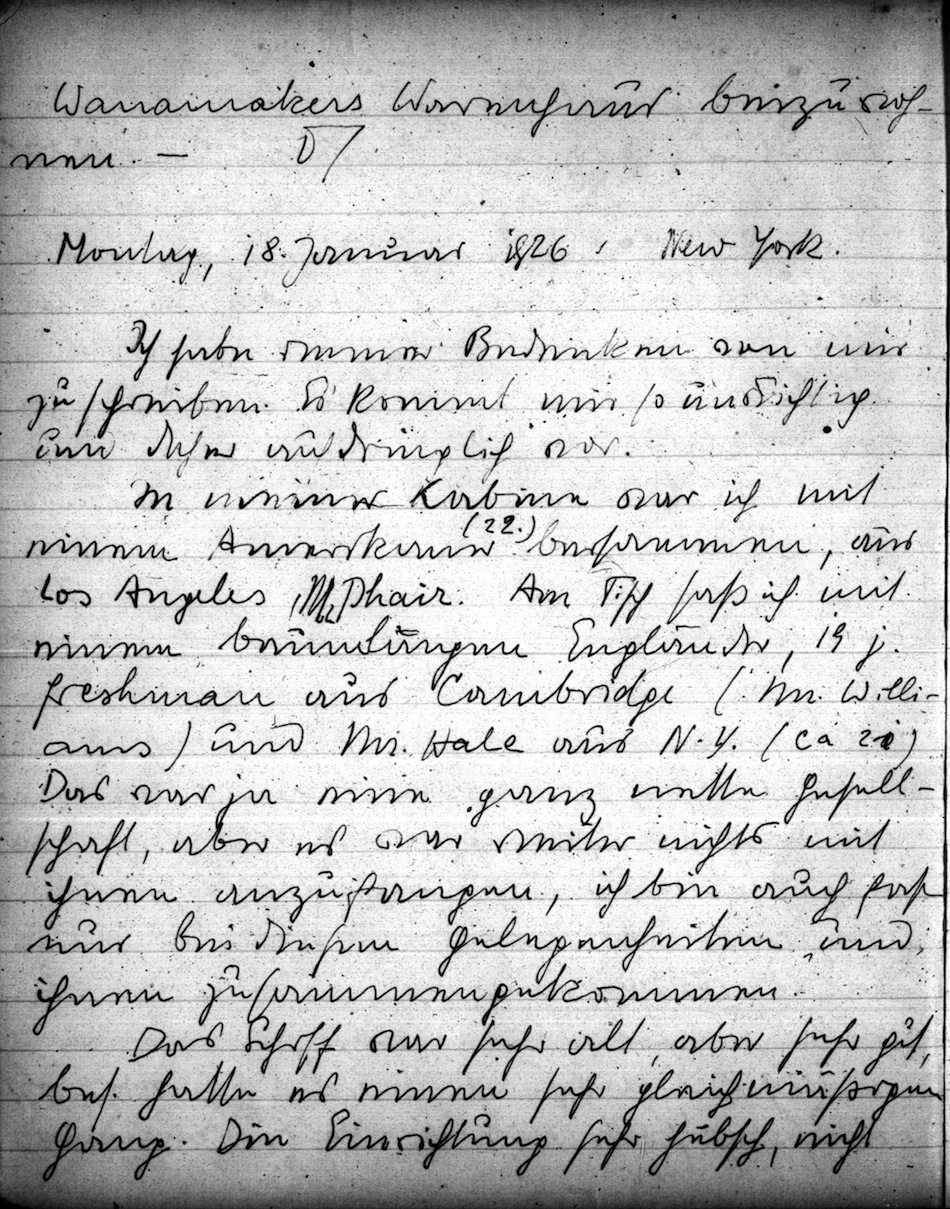 Wanamakers Warenhaus beizuwoh-
nen. —
Montag, 18. Januar 1926, New York.
Ich habe immer Bedenken von mir
zu schreiben. Es kommt mir so
und daher aufdringlich vor.
In meiner Kabine war ich mit
einem Amerikaner (22.) beisammen, aus
Los Angeles, Mc Phair. Am Tisch saß ich mit
einem baumlangen Engländer, 19 j.
freshman aus Cambridge (Mr. Willi-
ams) und Mr. Hale aus N.Y. (ca 20)
Das war ja eine ganz nette Gesell-
schaft, aber es war weiter nichts mit
ihnen anzufangen, ich bin auch fast
nur bei diesen Gelegenheiten mit
ihnen zusammengekommen.
Das Schiff war sehr alt, aber sehr gut,
bes. hatte es einen sehr gleichmäßigen
Gang. Die Einrichtung sehr hübsch, nicht